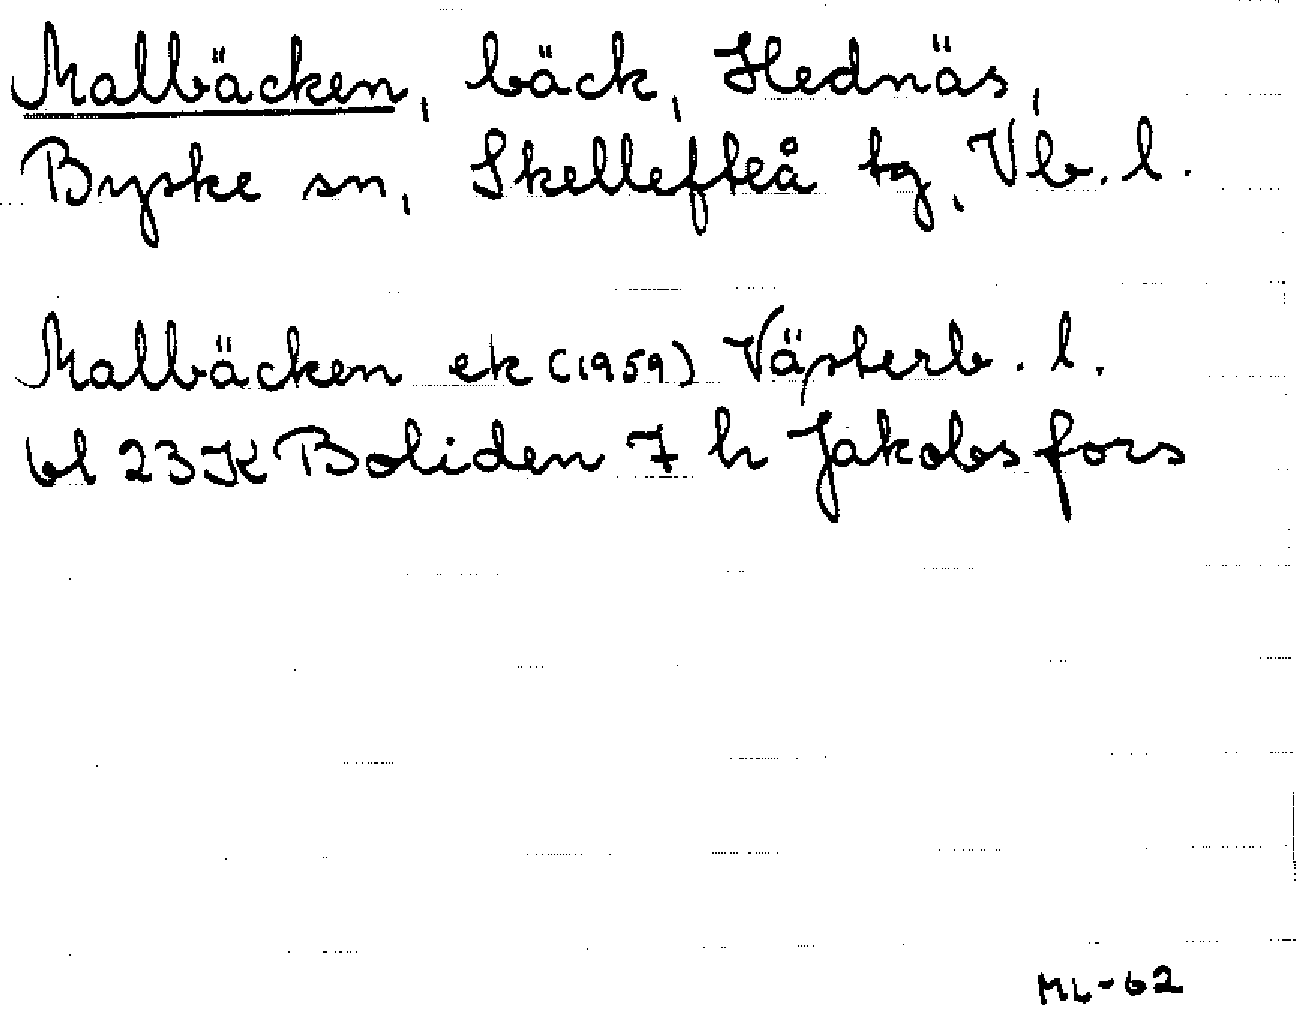 Malbäcken, bäck, Hednäs,
Byske sn, Skellefteå tg, Vb. l.
Malbäcken ek (1959) Västerb. l.
bl 23K Boliden 7 h Jakobsfors
ML-62